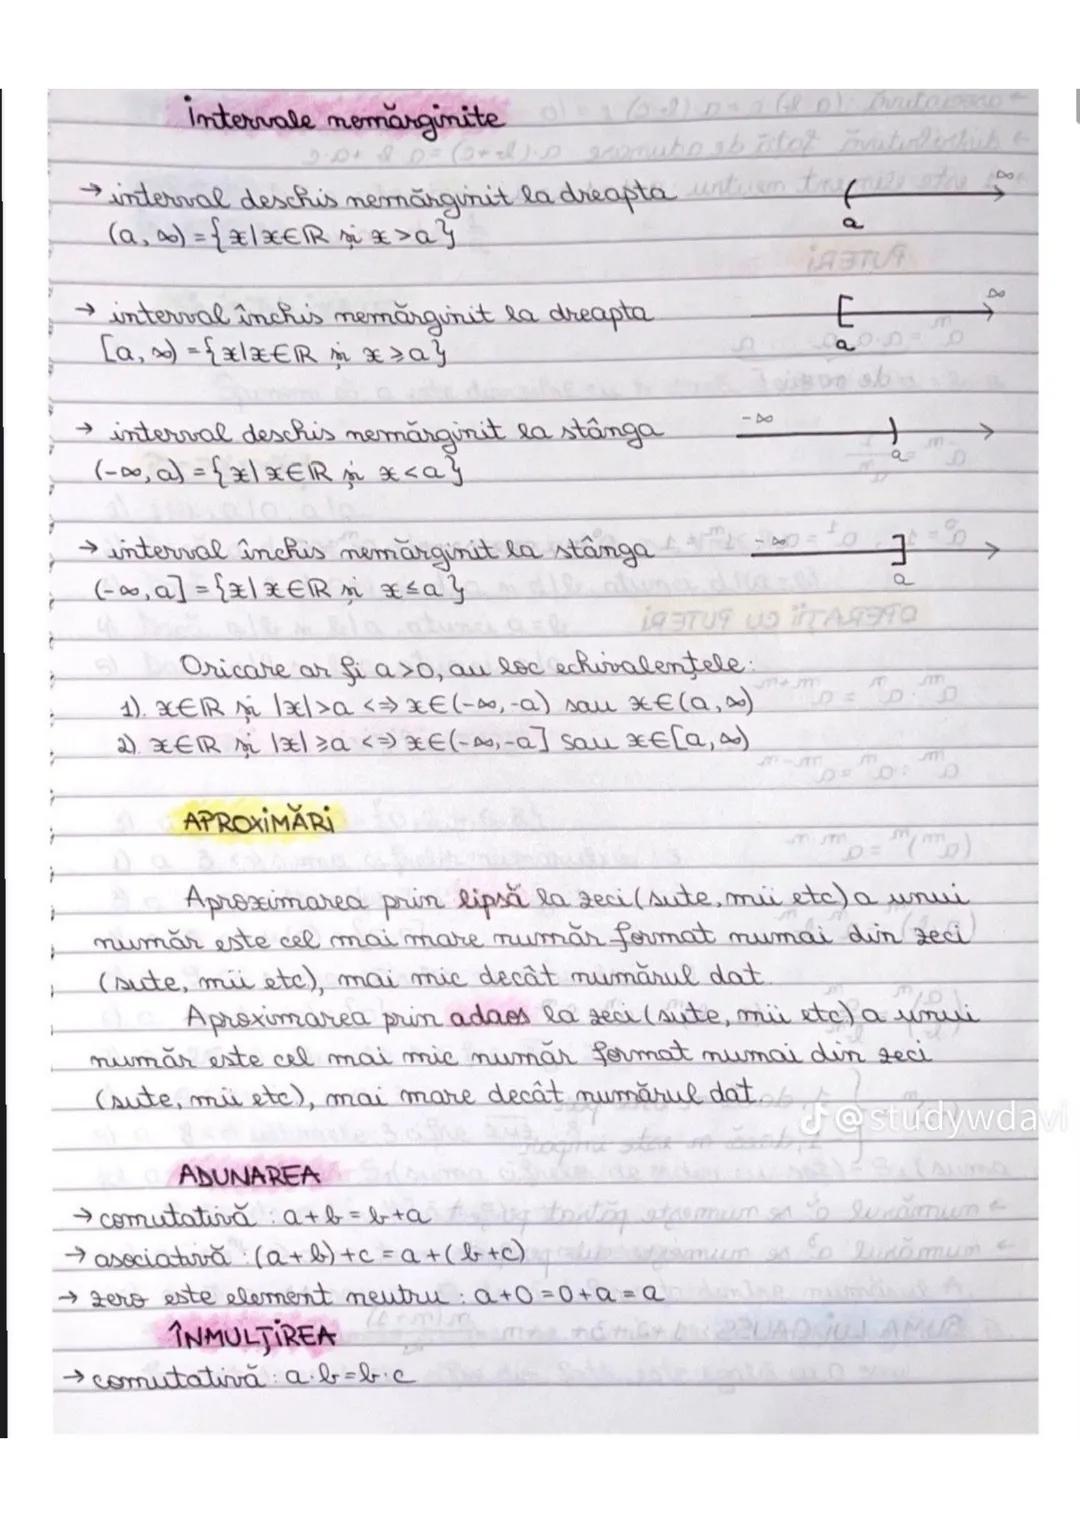 Intervale nemărginite
→ interval deschis nemărginit la dreapta
(a, ∞) = {x|x∈ℝ și x>a}
( ∞
a
→ interval închis nemărginit la dreapta
[a, ∞) = {x|x∈ℝ și x≥a}
[ ∞
a
→ interval deschis nemărginit la stânga
(-∞, a) = {x|x∈ℝ și x<a}
-∞ )
a
→ interval închis nemărginit la stânga
(-∞, a] = {x|x∈ℝ și x≤a}
-∞ ]
a
Oricare ar fi a>0, au loc echivalențele:
1). x∈ℝ și |x|>a <=> x∈(-∞,-a) sau x∈(a,∞)
2). x∈ℝ și |x|≥a <=> x∈(-∞,-a] sau x∈[a,∞)
APROXIMĂRI
Aproximarea prin lipsă la zeci (sute, mii etc) a unui
număr este cel mai mare număr format numai din zeci
(sute, mii etc), mai mic decât numărul dat.
Aproximarea prin adaos la zeci (sute, mii etc) a unui
număr este cel mai mic număr format numai din zeci
(sute, mii etc), mai mare decât numărul dat.
@studywdavi
ADUNAREA
→ comutativă : a+b=b+a
→ asociativă : (a+b)+c=a+(b+c)
→ zero este element neutru : a+0=0+a=a
ÎNMULȚIREA
→ comutativă : a·b=b·c